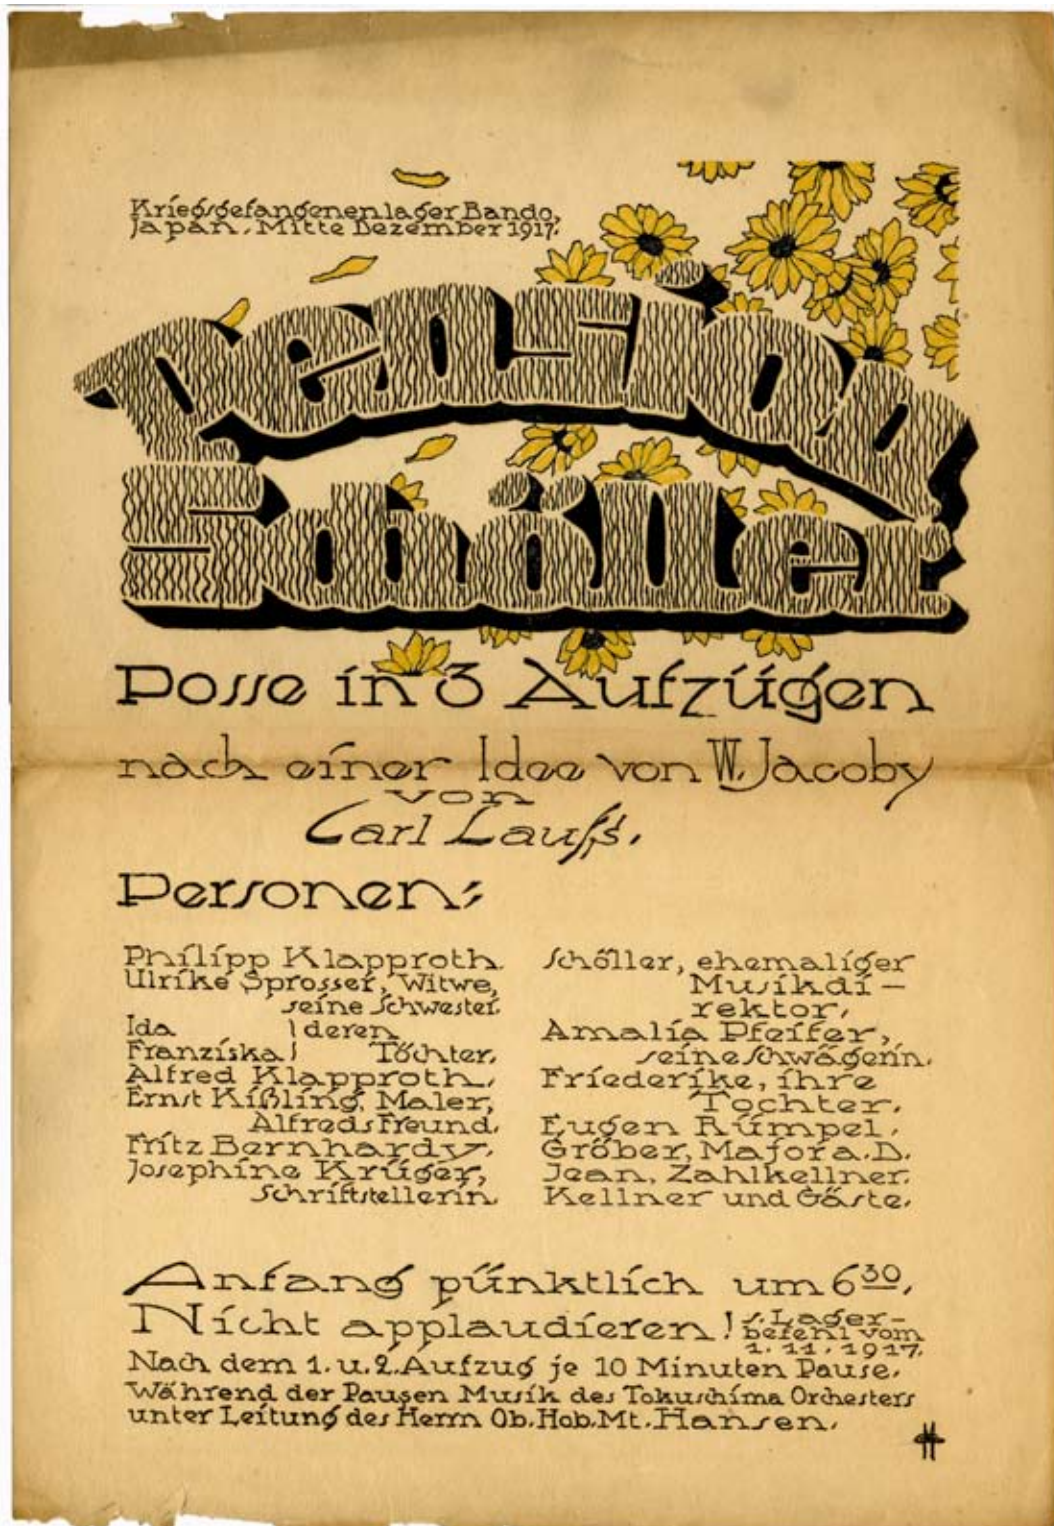 Kriegsgefangenenlager Bando,
Japan, Mitte Dezember 1917.
Pension
Schöller
Posse in 3 Aufzügen
nach einer Idee von W. Jacoby
von
Carl Laufs.
Personen:
Philipp Klapproth.
Ulrike Sprosser, Witwe,
seine Schwester.
Ida } deren
Franziska } Töchter,
Alfred Klapproth,
Ernst Kißling, Maler,
Alfreds Freund.
Fritz Bernhardy.
Josephine Krüger,
Schriftstellerin.
Schöller, ehemaliger
Musikdi-
rektor,
Amalia Pfeiffer,
seine Schwägerin.
Friederike, ihre
Tochter.
Eugen Rümpel.
Gröber, Major a. D.
Jean, Zahlkellner.
Kellner und Gäste.
Anfang pünktlich um 6 30.
Nicht applaudieren! s. Lager-
befehl vom
1. 11. 1917.
Nach dem 1. u. 2. Aufzug je 10 Minuten Pause.
Während der Pausen Musik des Tokuschima Orchesters
unter Leitung des Herrn Ob. Hob. Mt. Hansen.